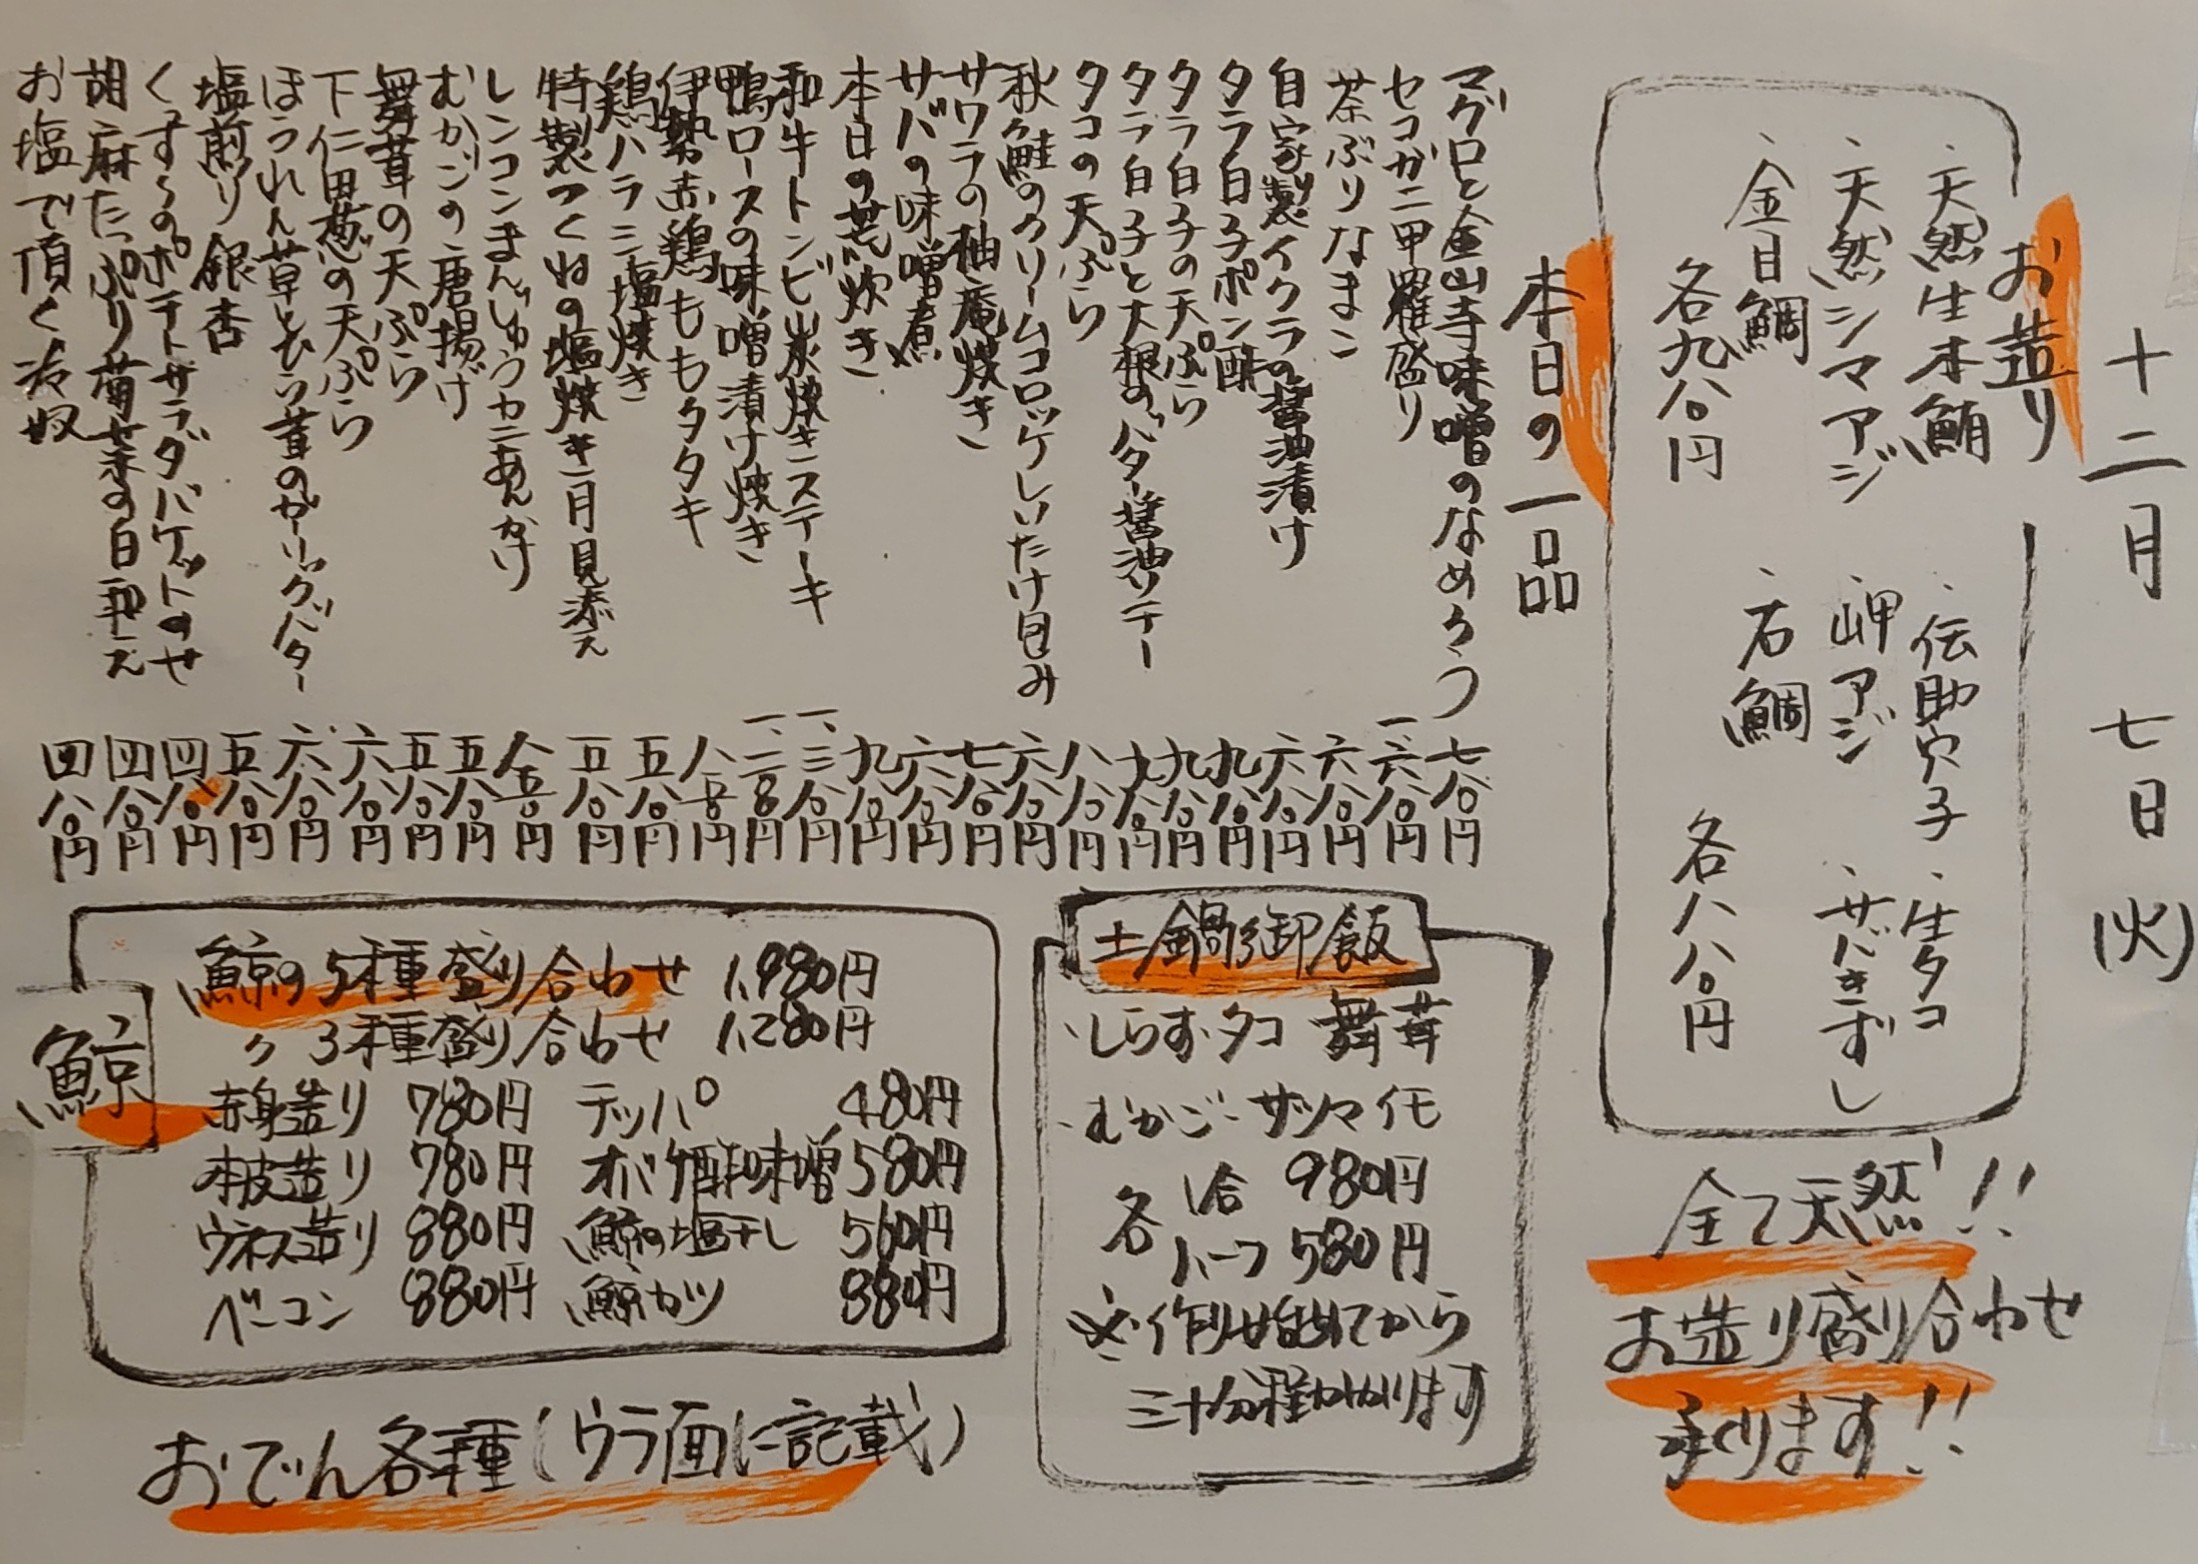 十二月 七日 (火)
お造り
・天然生本鮪
・天然シマアジ
・金目鯛
各九八〇円
・伝助穴子
・生タコ
・岬アジ
・サバきずし
・石鯛
各八八〇円
全て天然!!
お造り盛り合わせ
承ります!!
本日の一品
マグロと金山寺味噌のなめろう 七八〇円
セコガニ甲羅盛り 一、六八〇円
茶ぶりなまこ 六八〇円
自家製イクラの醤油漬け 六八〇円
タラ白子ポン酢 九八〇円
タラ白子の天ぷら 九八〇円
タラ白子と大根のバター醤油ソテー 九八〇円
タコの天ぷら 八八〇円
秋鮭のクリームコロッケしいたけ包み 六八〇円
サワラの柚庵焼き 七八〇円
サバの味噌煮 六八〇円
本日の荒炊き 九八〇円
和牛トンビ炭焼きステーキ 一、三八〇円
鴨ロースの味噌漬け焼き 一、二八〇円
伊勢赤鶏ももタタキ 八八〇円
鶏ハラミ塩焼き 五八〇円
特製つくねの塩焼き 月見添え 五八〇円
レンコンまんじゅうカニあんかけ 八五〇円
むかごの唐揚げ 五八〇円
舞茸の天ぷら 五八〇円
下仁田葱の天ぷら 六八〇円
ほうれん草とひら茸のガーリックバター 六八〇円
塩煎り銀杏 五八〇円
くずしのポテトサラダバゲットのせ 四八〇円
胡麻たっぷり菊菜の白和え 四八〇円
お塩で頂く冷奴 四八〇円
土鍋御飯
・しらす・タコ 舞茸
・むかご・サツマイモ
各 1合 980円
ハーフ 580円
※作り始めてから
三十分程かかります
鯨
鯨の5種盛り合わせ 1,980円
〃 3種盛り合わせ 1,280円
赤身造り 780円 テッパ 480円
本皮造り 780円 オバケ酢味噌 580円
ウネス造り 880円 鯨の塩干し 560円
ベーコン 880円 鯨カツ 880円
おでん各種(ウラ面に記載)